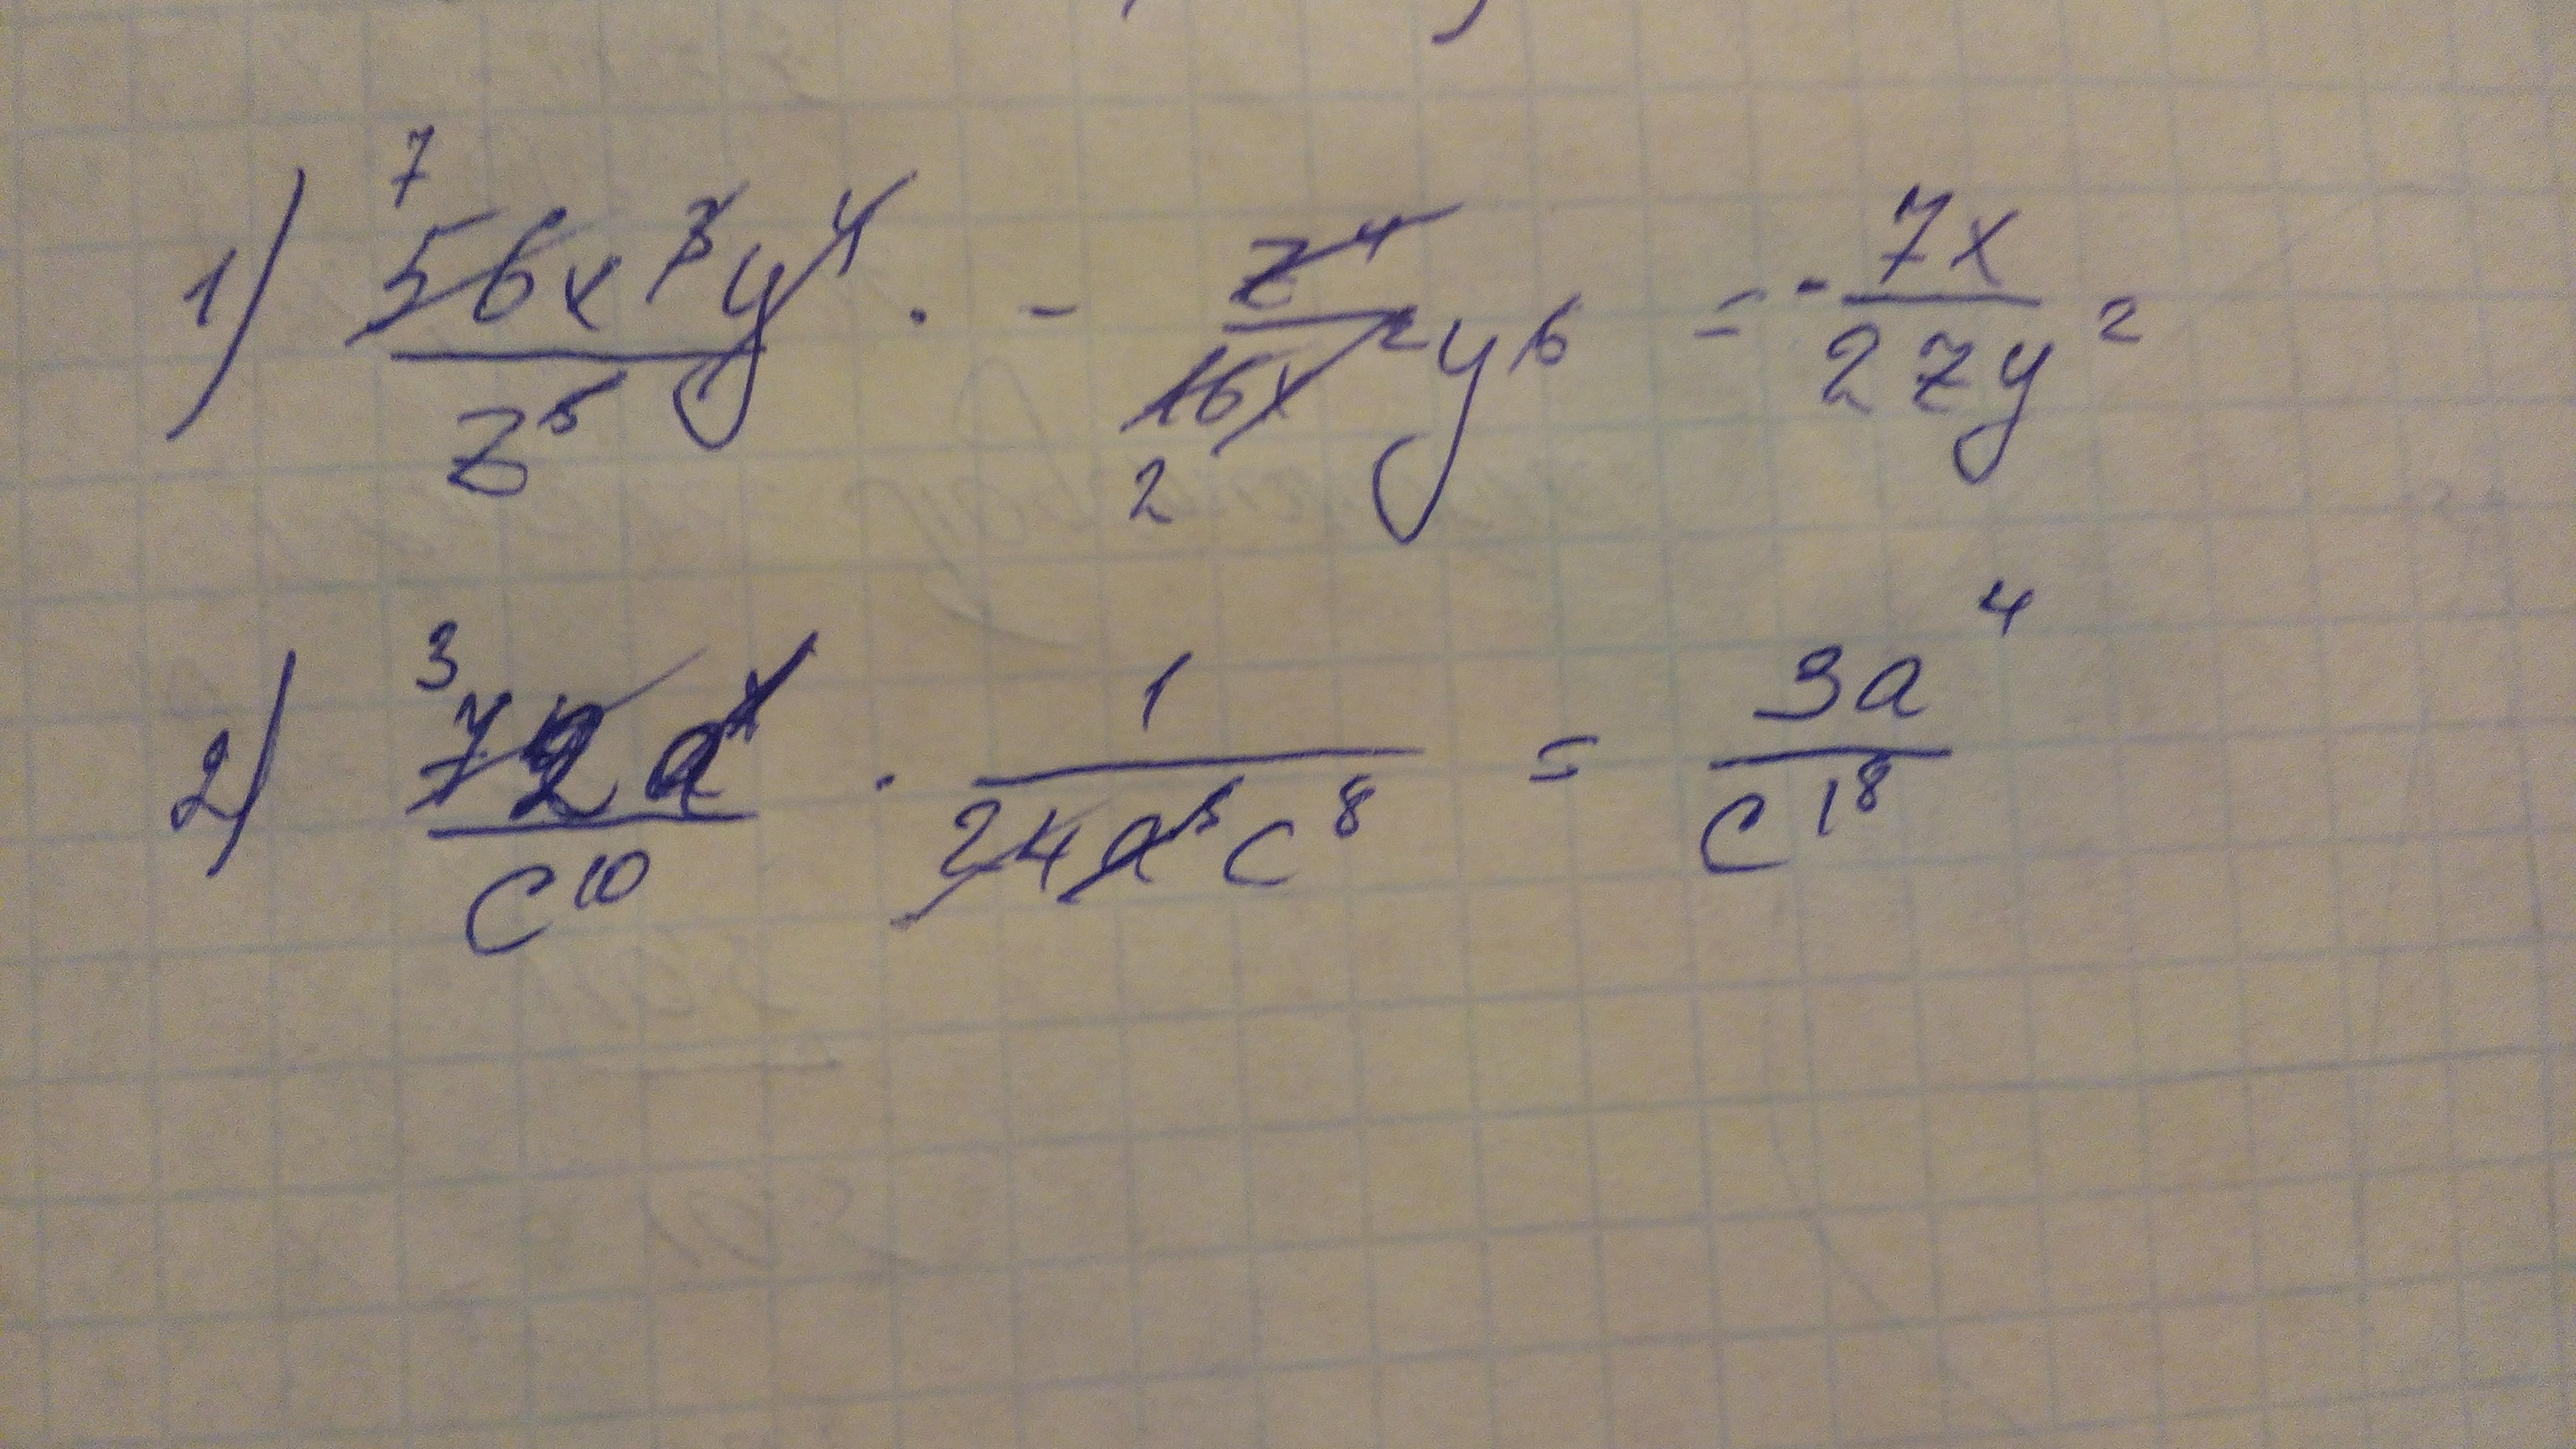 1) 7 56x³y⁴ / z⁵ · - z⁴ / 16x²y⁶ 2 = - 7x / 2zy²
2) 3 72a / c¹⁰ · 1 / 24a³c⁸ = 3a⁴ / c¹⁸